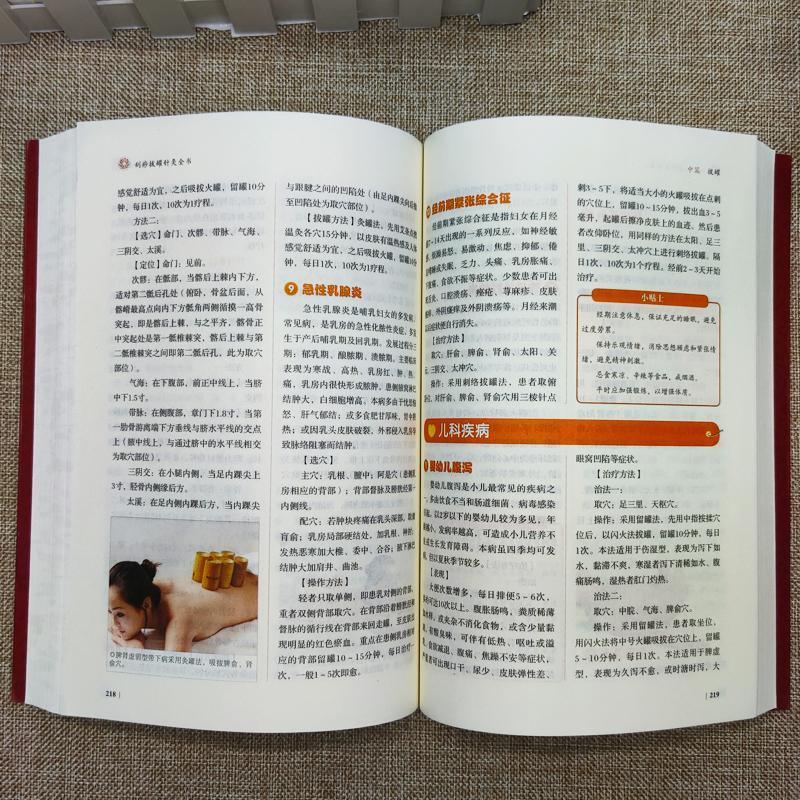 刮痧拔罐针灸全书
感觉舒适为宜，之后吸拔火罐，留罐10分
钟，每日1次，10次为1疗程。
方法二：
【选穴】命门、次髎、带脉、气海、
三阴交、太溪。
【定位】命门：见前。
次髎：在骶部，当髂后上棘内下方，
适对第二骶后孔处（俯卧，骨盆后面，从
髂嵴最高点向内下方骶角两侧循摸一高骨
突起，即是髂后上棘，与之平齐，骶骨正
中突起处是第一骶椎棘突，髂后上棘与第
二骶椎棘突之间即第二骶后孔，此为取穴
部位）。
气海：在下腹部，前正中线上，当脐
中下1.5寸。
带脉：在侧腹部，章门下1.8寸，当第
一肋骨游离端下方垂线与脐水平线的交点
上（腋中线上，与通过脐中的水平线相交
为取穴部位）。
三阴交：在小腿内侧，当足内踝尖上
3寸，胫骨内侧缘后方。
太溪：在足内侧内踝后方，当内踝尖
◎脾肾虚弱型带下病采用灸罐法，吸拔脾俞、肾
俞穴。
218
与跟腱之间的凹陷处（由足内踝尖向后推
至凹陷处为取穴部位）。
【拔罐方法】灸罐法，先用艾条点燃
温灸各穴15分钟，以皮肤有温热感及人体
感觉舒适为宜，之后吸拔火罐，留罐10分
钟，每日1次，10次为1疗程。
9 急性乳腺炎
急性乳腺炎是哺乳妇女的多发病、
常见病，是乳房的急性化脓性炎症，多发
生于产后哺乳期及回乳期。发展过程分三
期：郁乳期、酿脓期、溃脓期。主要临床
表现为寒战、高热，乳房红、肿、热、
痛，乳房内很快形成脓肿，患侧腋窝淋巴
结肿大，白细胞增高。本病多由于忧思恼
怒、肝气郁结；或多食肥甘厚味，胃中积
热；或因乳头皮肤破裂，外邪侵入乳房等
致脉络阻塞而结肿。
【选穴】
主穴：乳根、膻中；阿是穴（患侧乳
房相应的背部）；背部督脉及膀胱经第一
内侧线。
配穴：若肿块疼痛在乳头深部，取膏
肓俞；乳房局部硬结处，加乳根、神封；
发热恶寒加大椎、委中、合谷；腋下淋巴
结肿大加肩井、曲池。
【操作方法】
轻者只取单侧，即患乳对侧的背部，
重者双侧背部取穴。在背部沿着膀胱经和
督脉的循行线在背部来回走罐，至皮肤出
现明显的红色瘀血。重点在患侧乳房相对
应的背部留罐10～15分钟，每日治疗1
次，一般1～5次即愈。
中篇 拔罐
经前期紧张综合征
经前期紧张综合征是指妇女在月经
前7~14天出现的一系列反应，如神经敏
感、烦躁易怒、易激动、焦虑、抑郁、倦
嗜睡或失眠、乏力、头痛、乳房胀痛、
腹痛、食欲不振等症状。少数患者可出
舌炎、口腔溃疡、痤疮、荨麻疹、皮肤
外阴瘙痒及外阴溃疡等。月经来潮
以后症状便自行消失。
【治疗方法】
取穴：肝俞、脾俞、肾俞、太阳、关
元、三阴交、太冲穴。
操作：采用刺络拔罐法，患者取俯
卧位，对肝俞、脾俞、肾俞穴用三棱针点
刺3～5下，将适当大小的火罐吸拔在点刺
的穴位上，留罐10～15分钟，拔出血3～5
毫升，起罐后擦净皮肤上的血迹。然后患
者改仰卧位，用同样的方法在太阳、足三
里、三阴交、太冲穴上进行刺络拔罐，隔
日1次，10次为1个疗程。经前2～3天开始
治疗。
小贴士
经期注意休息，保证充足的睡眠，避免
过度劳累。
保持乐观情绪，消除思想顾虑和紧张情
绪，避免精神刺激。
忌食寒凉、辛辣等食品，戒烟酒。
平时应加强锻炼，以增强体质。
儿科疾病
婴幼儿腹泻
婴幼儿腹泻是小儿最常见的疾病之
一，多由饮食不当和肠道细菌、病毒感染
引起，以2岁以下的婴幼儿较为多见，年
龄越小，发病率越高，可造成小儿营养不
良或生长发育障碍。本病虽四季均可发
病，但以夏秋季节较多。
【表现】
大便次数增多，每日排便5～6次，
多的可达10次以上。腹胀肠鸣，粪质稀薄
如水样，或夹杂不消化食物，或含少量黏
液，有酸臭味，可伴有低热、呕吐或溢
奶、食欲减退、腹痛、焦躁不安等症状，
严重者可出现口干、尿少、皮肤弹性差、
眼窝凹陷等症状。
【治疗方法】
治法一：
取穴：足三里、天枢穴。
操作：采用留罐法，先用中指按揉穴
位后，以闪火法拔留罐10分钟，每日1
次。本法适用于伤湿型，表现为泻下如
水，黏滞不爽，寒湿者泻下清稀如水、腹
痛肠鸣，湿热者肛门灼热。
治法二：
取穴：中脘、气海、脾俞穴。
操作：采用留罐法，患者取坐位，
用闪火法将中号火罐吸拔在穴位上，留罐
5～10分钟，每日1次。本法适用于脾虚
型，表现为久泻不愈，或时溏时泻，大
219